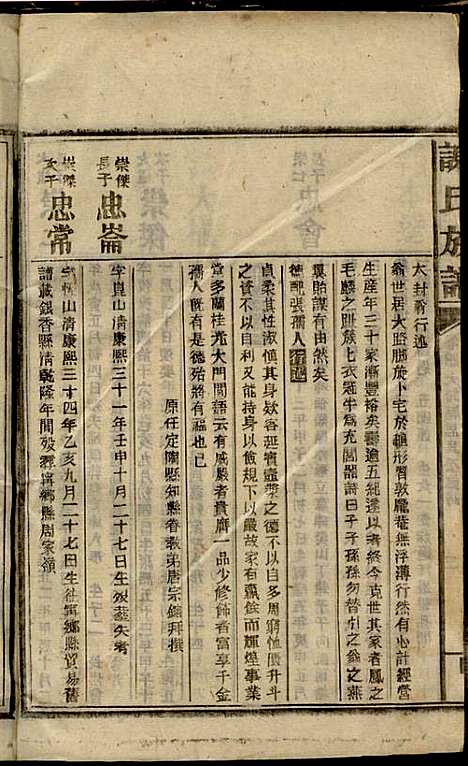 謝氏族譜
太封翁行述
翁世居大路脚放卜宅於槌形習敦龐菴無浮薄行然有心計經營
生産年三十家漸豐裕矣壽逾五純逮以考終今克世其家者鳳
毛麟之趾族上衣冠半爲充閭器詩曰子子孫孫勿替引之翁之燕
翼貽謀有由然矣
德配張孺人行述
貞柔其性淑慎其身欵客廷賓壺漿之德不以自多周窮恤匱升斗
之資不以自利又能持身以儉規下以嚴故家有贏餘而輝煌事業
堂多蘭桂光大門閭語云有威嚴者貴膺一品少修飾者富享千金
孺人既有是德殆將有福也已
原任定陶縣知縣眷教弟唐宗鎮拜撰
崇傑長子 忠崙
字崑山清康熙三十一年壬申十月二十七日生歿葬失考
崇傑次子 忠常
字恒山清康熙三十四年乙亥九月二十七日生往寧鄉縣貿易舊
譜載銀香縣清乾隆年間歿葬寧鄉縣周家嶺